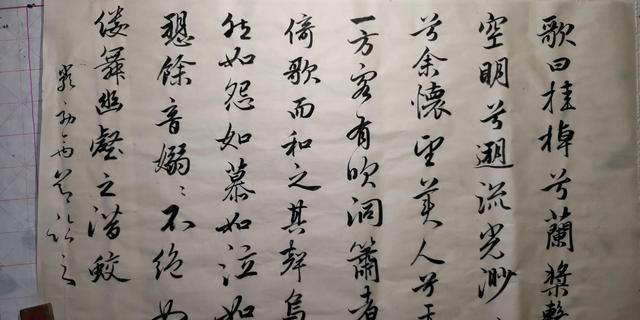 歌曰桂棹兮蘭槳擊
空明兮遡流光渺
兮余懷望美人兮天
一方客有吹洞簫者
倚歌而和之其聲烏
然如怨如慕如泣如
餘音嫋〻不絕如
縷舞幽壑之潛蛟